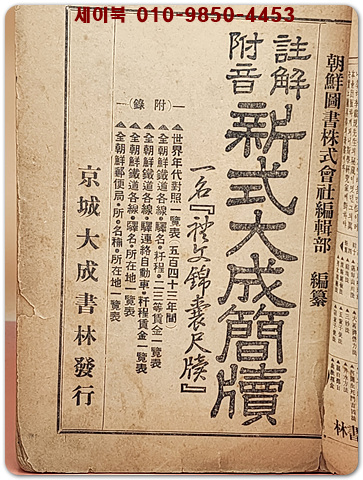 세이북 010-9850-4453
朝鮮圖書株式會社編輯部 編纂
註解
附音
新式大成簡牘
一名『禮文錦囊尺牘』
(附錄)
世界年代對照一覽表(五百四十二年間)
全朝鮮鐵道各線·驛名·粁程·二三等賃金一覽表
全朝鮮鐵道各線·驛連絡自動車·粁程賃金一覽表
全朝鮮鐵道各線·驛名·所在地一覽表
全朝鮮郵便局·所·名稱·所在地一覽表
京城大成書林發行